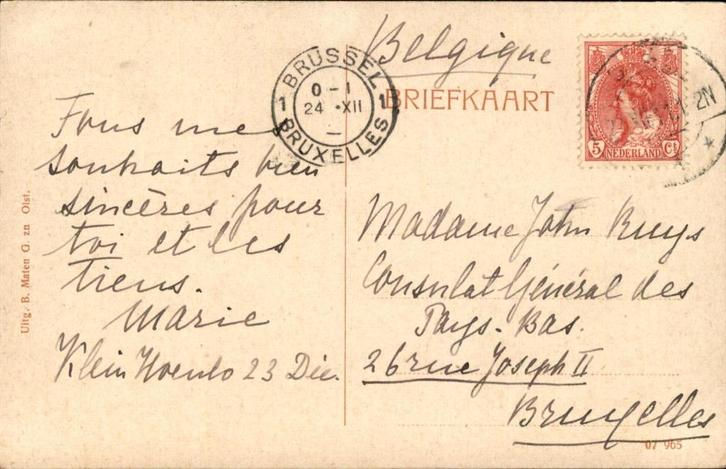 Belgique
BRIEFKAART
BRUSSEL
0-1
1 24 XII 1
BRUXELLES
5 Ct
NEDERLAND
Tous mes
souhaits bien
sincères pour
toi et les
tiens.
Marie
Klein Hoenlo 23 Déc.
Madame John Ruys
Consulat Général des
Pays-Bas.
26 rue Joseph II
Bruxelles
Uitg. B. Maten G. zn Olst.
07 965